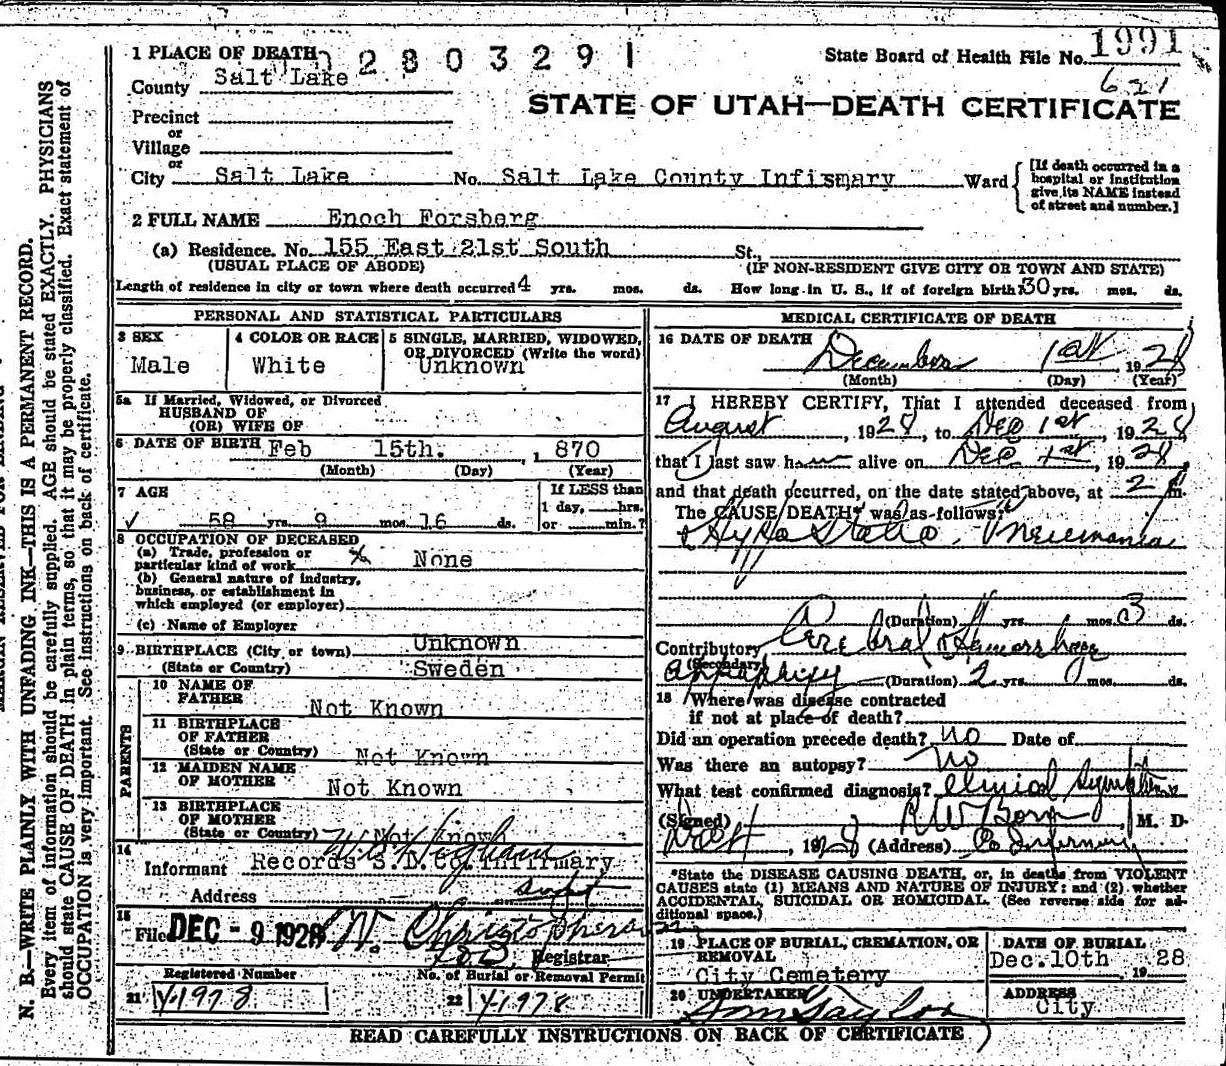 1 PLACE OF DEATH 2803291
State Board of Health File No. 1991
621
County Salt Lake
STATE OF UTAH—DEATH CERTIFICATE
Precinct
or
Village
or
City Salt Lake No. Salt Lake County Infirmary Ward
[If death occurred in a
hospital or institution
give its NAME instead
of street and number.]
2 FULL NAME Enoch Forsberg
(a) Residence. No. 155 East 21st South St.,
(USUAL PLACE OF ABODE) (IF NON-RESIDENT GIVE CITY OR TOWN AND STATE)
Length of residence in city or town where death occurred 4 yrs. mos. ds. How long in U. S., if of foreign birth? 30 yrs. mos. ds.
PERSONAL AND STATISTICAL PARTICULARS
3 SEX
Male
4 COLOR OR RACE
White
5 SINGLE, MARRIED, WIDOWED,
OR DIVORCED (Write the word)
Unknown
5a If Married, Widowed, or Divorced
HUSBAND OF
(OR) WIFE OF
6 DATE OF BIRTH Feb 15th. , 1 870
(Month) (Day) (Year)
7 AGE
58 yrs. 9 mos. 16 ds.
If LESS than
1 day, hrs.
or min.?
8 OCCUPATION OF DECEASED
(a) Trade, profession or
particular kind of work None
(b) General nature of industry,
business, or establishment in
which employed (or employer)
(c) Name of Employer
9 BIRTHPLACE (City or town) Unknown
(State or Country) Sweden
PARENTS
10 NAME OF
FATHER Not Known
11 BIRTHPLACE
OF FATHER
(State or Country) Not Known
12 MAIDEN NAME
OF MOTHER Not Known
13 BIRTHPLACE
OF MOTHER
(State or Country) Not Known
14
Informant Records S.L.Co. Infirmary
Address Supt
15
Filed DEC - 9 1928
Registrar
Registered Number No. of Burial or Removal Permit
21 Y-1978 22 Y-1978
MEDICAL CERTIFICATE OF DEATH
16 DATE OF DEATH
December 1st 1928
(Month) (Day) (Year)
17 I HEREBY CERTIFY, That I attended deceased from
August, 1928, to Dec 1st, 1928
that I last saw h alive on Dec. 1st, 1928
and that death occurred, on the date stated above, at 2 m.
The CAUSE DEATH* was as follows:
Hypostatic Pneumonia
(Duration) yrs. mos. 3 ds.
Contributory Cerebral Hemorrhage
(Secondary) (Duration) 2 yrs. 0 mos. ds.
18 Where was disease contracted
if not at place of death?
Did an operation precede death? no Date of
Was there an autopsy? no
What test confirmed diagnosis? Clinical Symptoms
(Signed) M. D.
, 1928 (Address) Co Infirmary
*State the DISEASE CAUSING DEATH, or, in deaths from VIOLENT
CAUSES state (1) MEANS AND NATURE OF INJURY; and (2) whether
ACCIDENTAL, SUICIDAL OR HOMICIDAL. (See reverse side for ad-
ditional space.)
19 PLACE OF BURIAL, CREMATION, OR
REMOVAL
City Cemetery
DATE OF BURIAL
Dec. 10th 19 28
20 UNDERTAKER
ADDRESS
City
READ CAREFULLY INSTRUCTIONS ON BACK OF CERTIFICATE
N. B.—WRITE PLAINLY WITH UNFADING INK—THIS IS A PERMANENT RECORD.
Every item of information should be carefully supplied. AGE should be stated EXACTLY. PHYSICIANS
should state CAUSE OF DEATH in plain terms, so that it may be properly classified. Exact statement of
OCCUPATION is very important. See instructions on back of certificate.